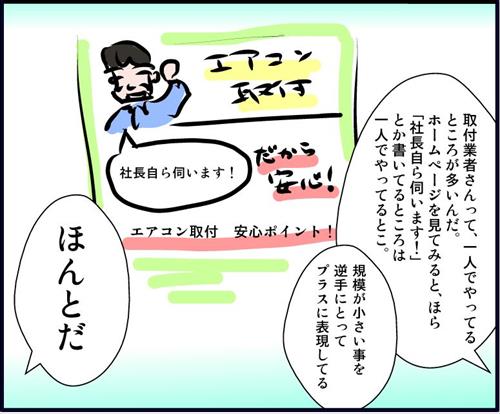 取付業者さんって、一人でやってる
ところが多いんだ。
ホームページを見てみると、ほら
「社長自ら伺います！」
とか書いてるところは
一人でやってるとこ。
規模が小さい事を
逆手にとって
プラスに表現してる
エアコン
取付
社長自ら伺います！
だから
安心!
エアコン取付　安心ポイント！
ほんとだ